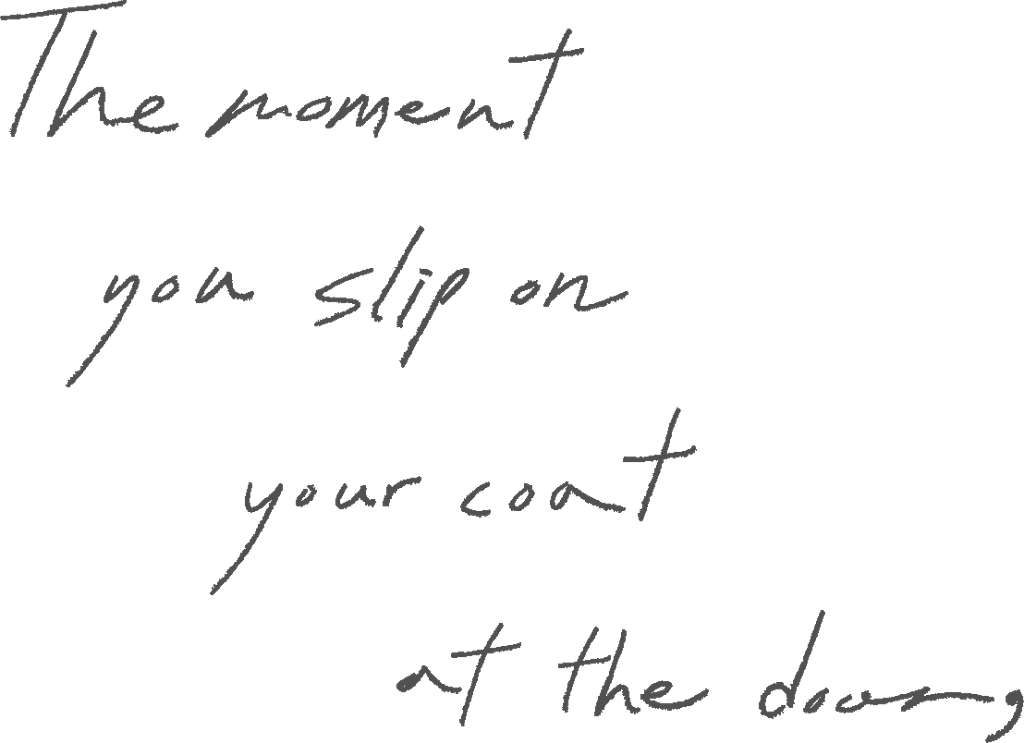 The moment
you slip on
your coat
at the door,